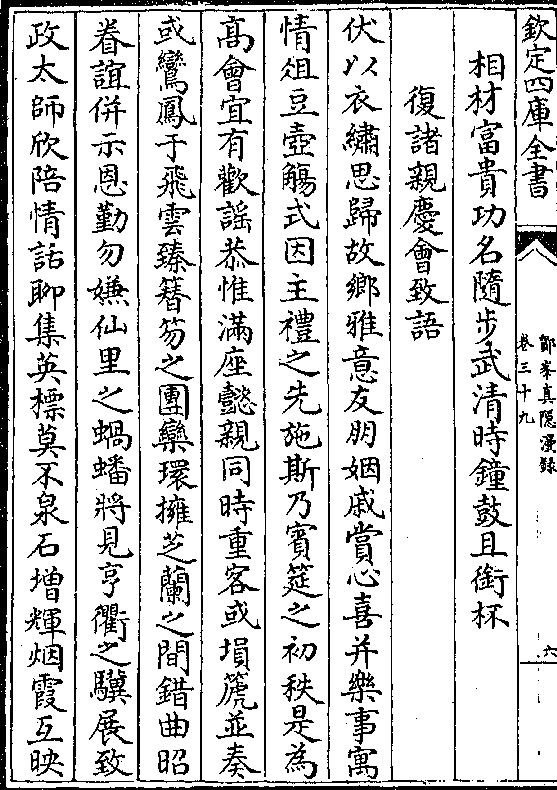 欽定四庫全書
鄮峯真隠漫錄
卷三十九
六
相材富貴功名隨步武清時鐘鼓且銜杯
復諸親慶會致語
伏以衣繡思歸故鄉雅意友朋姻戚賞心喜并樂事寓
情俎豆壺觴式因主禮之先施斯乃賓筵之初秩是為
髙會宜有歡謡恭惟滿座懿親同時重客或塤箎並奏
或鸞鳳于飛雲臻簮笏之團欒環擁芝蘭之間錯曲昭
眷誼併示恩勤勿嫌仙里之蝸蟠將見亨衢之驥展致
政太師欣陪情話聊集英標莫不泉石增輝烟霞互映